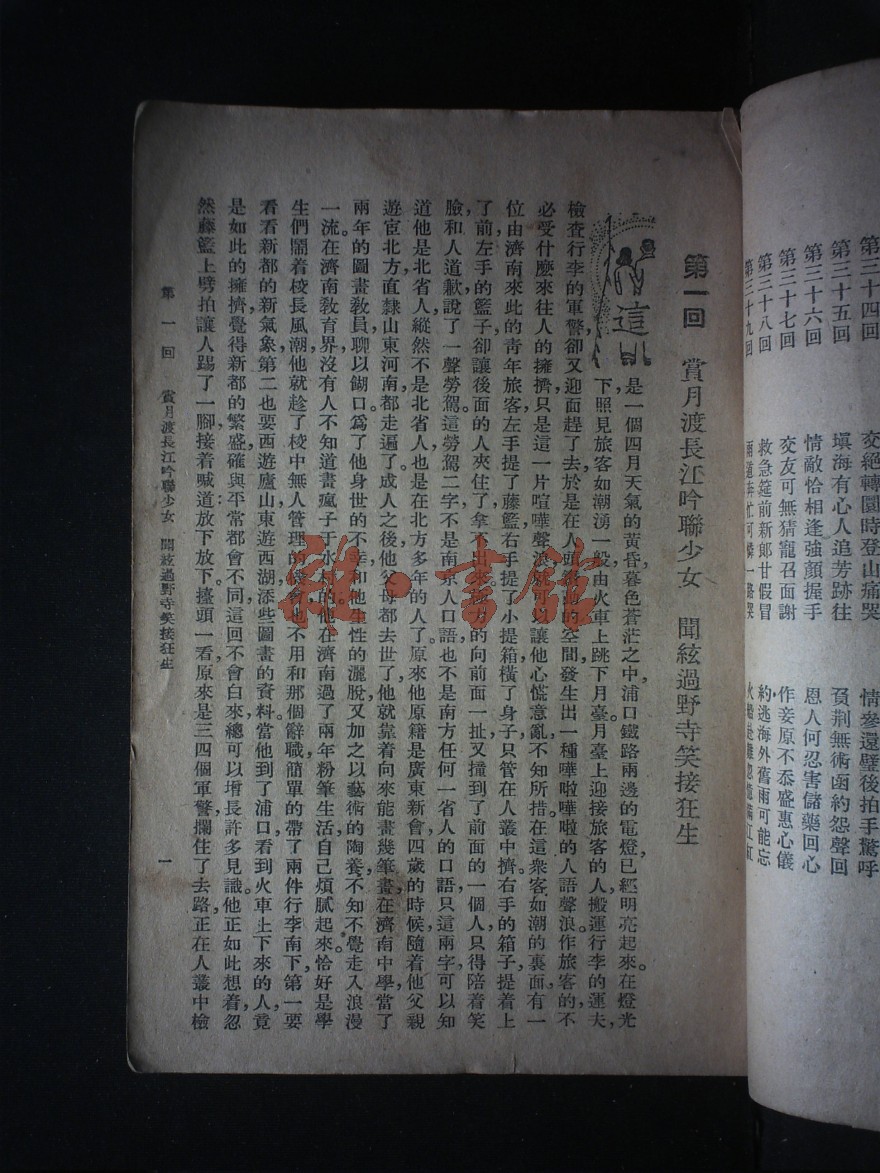 第三十四回　交絕轉圜時登山痛哭　情參還璧後拍手驚呼
第三十五回　填海有心人追芳跡往　負荆無術函約怨聲回
第三十六回　情敵恰相逢強顏握手　恩人何忍害儲藥回心
第三十七回　交友可無猜寵召面謝　作妾原不忝盛惠心儀
第三十八回　救急筵前新郎甘假冒　約逃海外舊雨可能忘
第三十九回
第一回　賞月渡長江吟聯少女　聞絃過野寺笑接狂生
這是一個四月天氣的黃昏，暮色蒼茫之中，浦口鐵路兩邊的電燈，已經明亮起來。在燈光
下，照見旅客如潮湧一般，由火車上跳下月臺。月臺上迎接旅客的人，搬運行李的運夫，
檢查行李的軍警，卻又迎面趕了去，於是在人頭的空間，發生出一種嘩啦嘩啦的人語聲浪。作旅客的，不
必受什麼來往人的擁擠，只是這一片喧嘩聲浪，就可以讓他心慌意亂，不知所措。在這衆客如潮的裏面，有一
位由濟南來此的青年旅客，左手提了藤籃，右手提了小提箱，橫了身子，只管在人叢中擠。右手的箱子，提着上
了前，左手的籃子，卻讓後面的人夾住了，拿不出來。使力的向前面一扯，又撞到了前面的一個人，只得陪着笑
臉，和人道歉，說了一聲勞駕。這勞駕二字，不是南京人口語，也不是南方任何一省人的口語，只這兩字，可以知
道他是北省人，縱然不是北省人，也是在北方多年的人了。原來他原籍是廣東新會，四歲的時候，隨着他父親
遊宦北方，直隸山東河南，都走遍了。成人之後，他父母都去世了，他就靠着向來能畫幾筆畫，在濟南中學，當了
兩年的圖畫教員，聊以餬口。爲了他身世的不幸，和他生性的灑脫，又加之以藝術的陶養，不知不覺，走入浪漫
一流。在濟南教育界，沒有人不知道畫瘋子于水村的。他在濟南過了兩年粉筆生活，自己煩膩起來。恰好是學
生們鬧着校長風潮，他就趁了校中無人管理的機會，也不用和那個辭職，簡單的帶了兩件行李南下，第一要
看看新都的新氣象，第二也要西遊廬山，東遊西湖，添些圖畫的資料。當他到了浦口，看到火車上下來的人，竟
是如此的擁擠，覺得新都的繁盛，確與平常都會不同，這回不會白來，總可以增長許多見識。他正如此想着，忽
然藤籃上劈拍讓人踢了一腳，接着喊道：放下放下。擡頭一看，原來是三四個軍警，攔住了去路，正在人叢中檢
第一回　賞月渡長江吟聯少女　聞絃過野寺笑接狂生　一